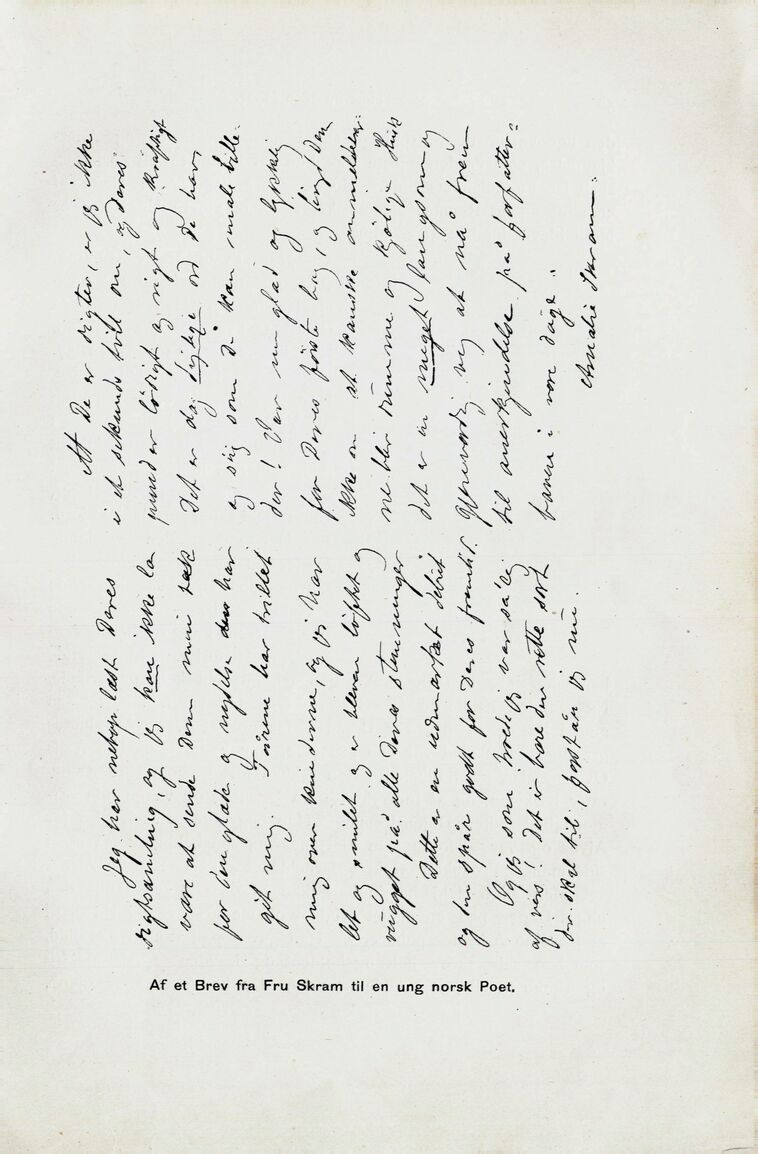 Jeg har netop læst Deres
digtsamling, og jeg kan ikke la
være at sende Dem min tak
for den glæde og nydelse den har
git mig. Tårene har trillet
mig over kinderne, og jeg har
let og smilet og er bleven løftet og
vugget på alle Deres stemninger
Dette er en udmærket debut
og den spår godt for Deres fremtid.
Og jeg som troede jeg var så lej
af vers! Det er bare den rette sort
der skal til, forstår jeg nu.
At De er digter, er jeg ikke
i et sekunds tvil om, og Deres
pund er lødigt og rigt og kraftigt
Det er da dejlige ord De har,
og sig som De kan male bille-
der! Vær nu glad og lykkelig
for Deres første bog, og bryd Dem
ikke om at kanske anmelder-
ne blir dumme og kjølige. Husk
det er en meget langsom og
vej at nå frem
til anerkjendelse på forfatter-
banen i vore dage.
Amalie Skram.
Af et Brev fra Fru Skram til en ung norsk Poet.